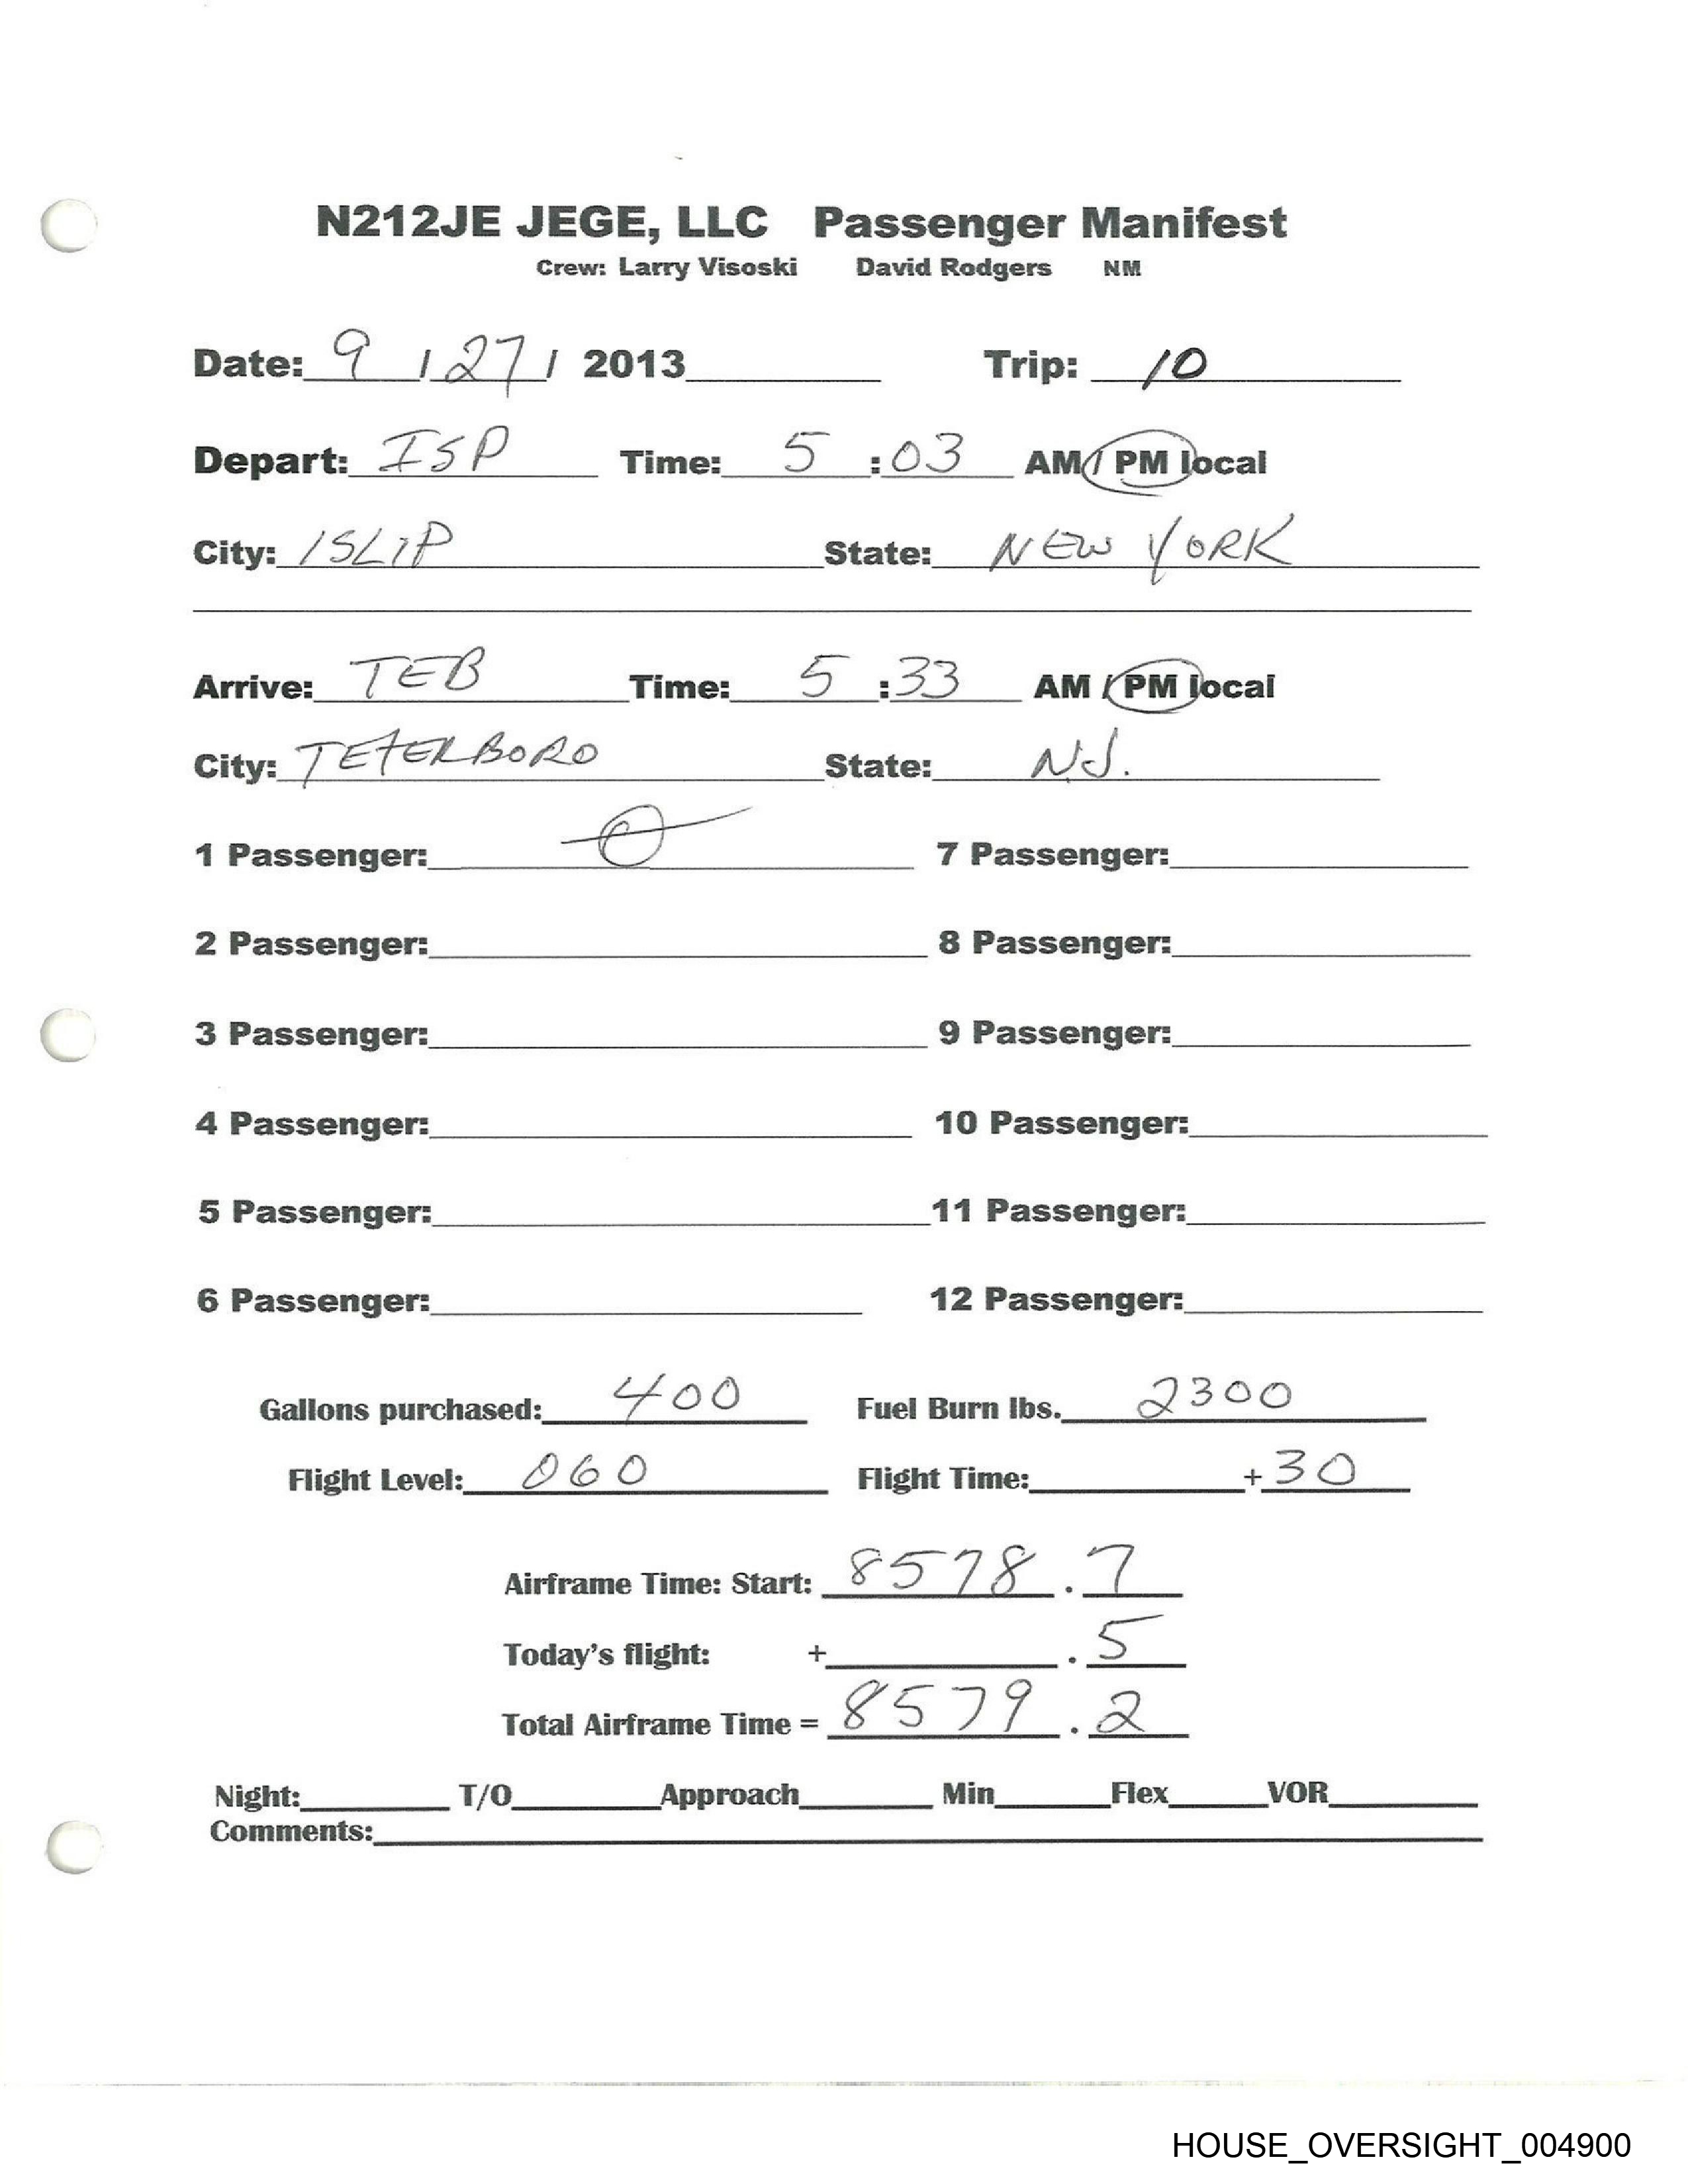 N212JE JEGE, LLC Passenger Manifest
Crew: Larry Visoski David Rodgers NM
Date: 9 / 27 / 2013 Trip: 10
Depart: ISP Time: 5 : 03 AM / PM local
City: ISLIP State: NEW YORK
Arrive: TEB Time: 5 : 33 AM / PM local
City: TETERBORO State: NJ.
1 Passenger: 0 7 Passenger:
2 Passenger: 8 Passenger:
3 Passenger: 9 Passenger:
4 Passenger: 10 Passenger:
5 Passenger: 11 Passenger:
6 Passenger: 12 Passenger:
Gallons purchased: 400 Fuel Burn lbs. 2300
Flight Level: 060 Flight Time: + 30
Airframe Time: Start: 8578 . 7
Today's flight: + . 5
Total Airframe Time = 8579 . 2
Night: T/O Approach Min Flex VOR
Comments:
HOUSE_OVERSIGHT_004900